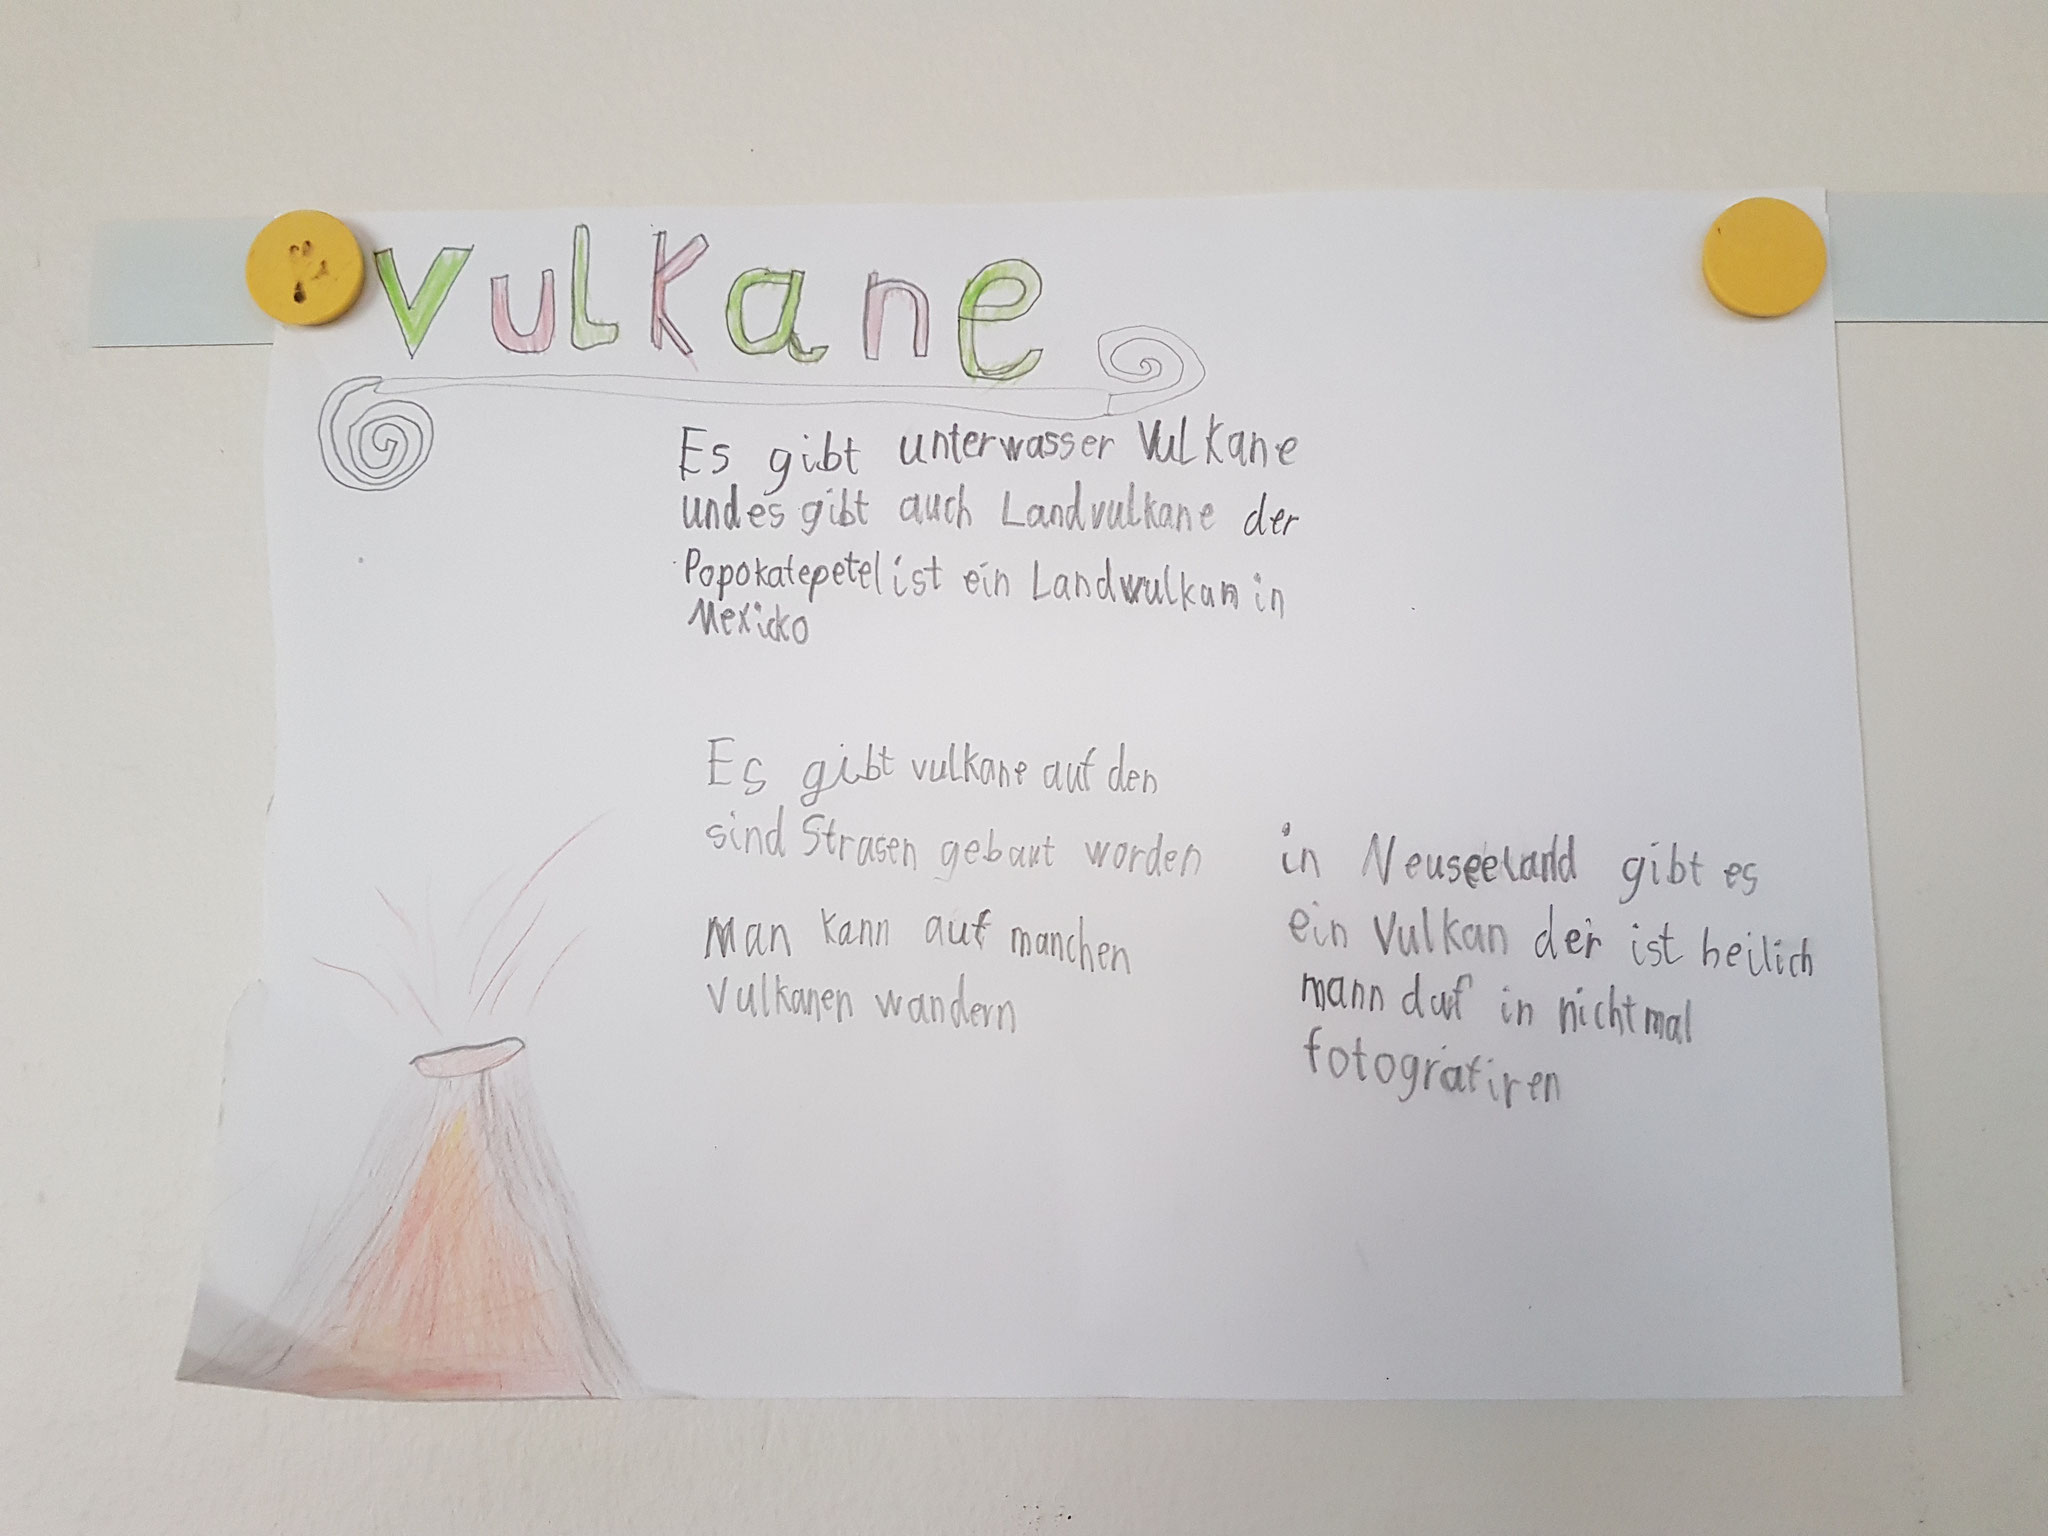 Vulkane
Es gibt unterwasser Vulkane
und es gibt auch Landvulkane der
Popokatepetel ist ein Landvulkan in
Mexicko
Es gibt vulkane auf den
sind Strasen gebaut worden
man kann auf manchen
Vulkanen wandern
in Neuseeland gibt es
ein Vulkan der ist heilich
mann darf in nicht mal
fotografiren